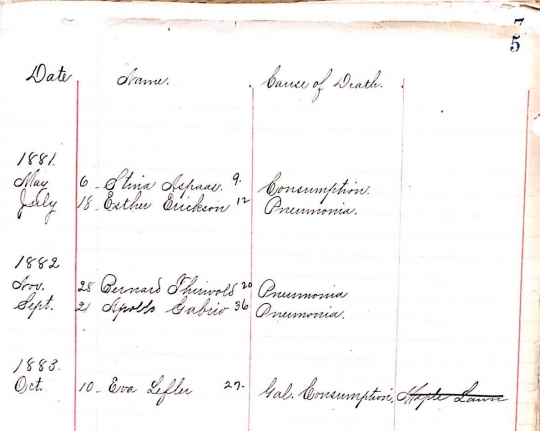 7
5
Date Name. Cause of Death.
1881.
May 6 - Stina Aspaas. 9. Consumption.
July 18 - Esther Erickson 12 Pneumonia.
1882
Nov. 28 Bernard 20 Pneumonia
Sept. 21 36 Pneumonia.
1883.
Oct. 10 - Eva Lefler 27. Gal. Consumption, Maple Lawn